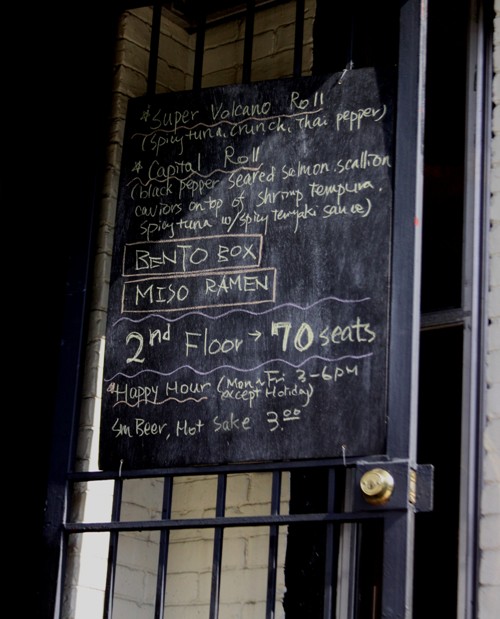 * Super Volcano Roll
(spicy tuna, crunch, Thai pepper)
* Capital Roll
(black pepper seared salmon. scallion
caviors on top of shrimp tempura.
spicy tuna w/ spicy teriyaki sauce)
BENTO BOX
MISO RAMEN
2nd Floor → 70 seats
*Happy Hour (Mon ~ Fri 3-6pm
except Holiday)
Sm Beer, Hot Sake 3.00